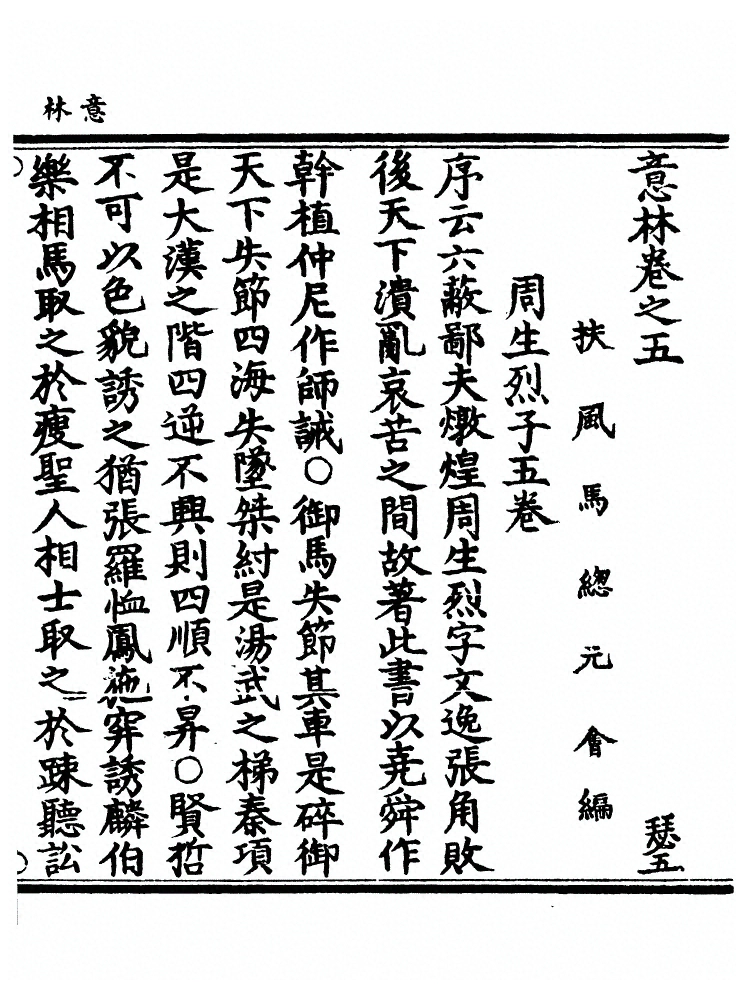 意林
意林卷之五
瑟五
扶風馬總元會編
周生烈子五卷
序云六蔽鄙夫燉煌周生烈字文逸張角敗
後天下潰亂哀苦之間故著此書以堯舜作
幹植仲尼作師誡〇御馬失節其車是碎御
天下失節四海失墜桀紂是湯武之梯秦項
是大漢之階四逆不興則四順不昇〇賢哲
不可以色貌誘之猶張羅恤鳳施穽誘麟伯
樂相馬取之於瘦聖人相士取之於踈聽訟